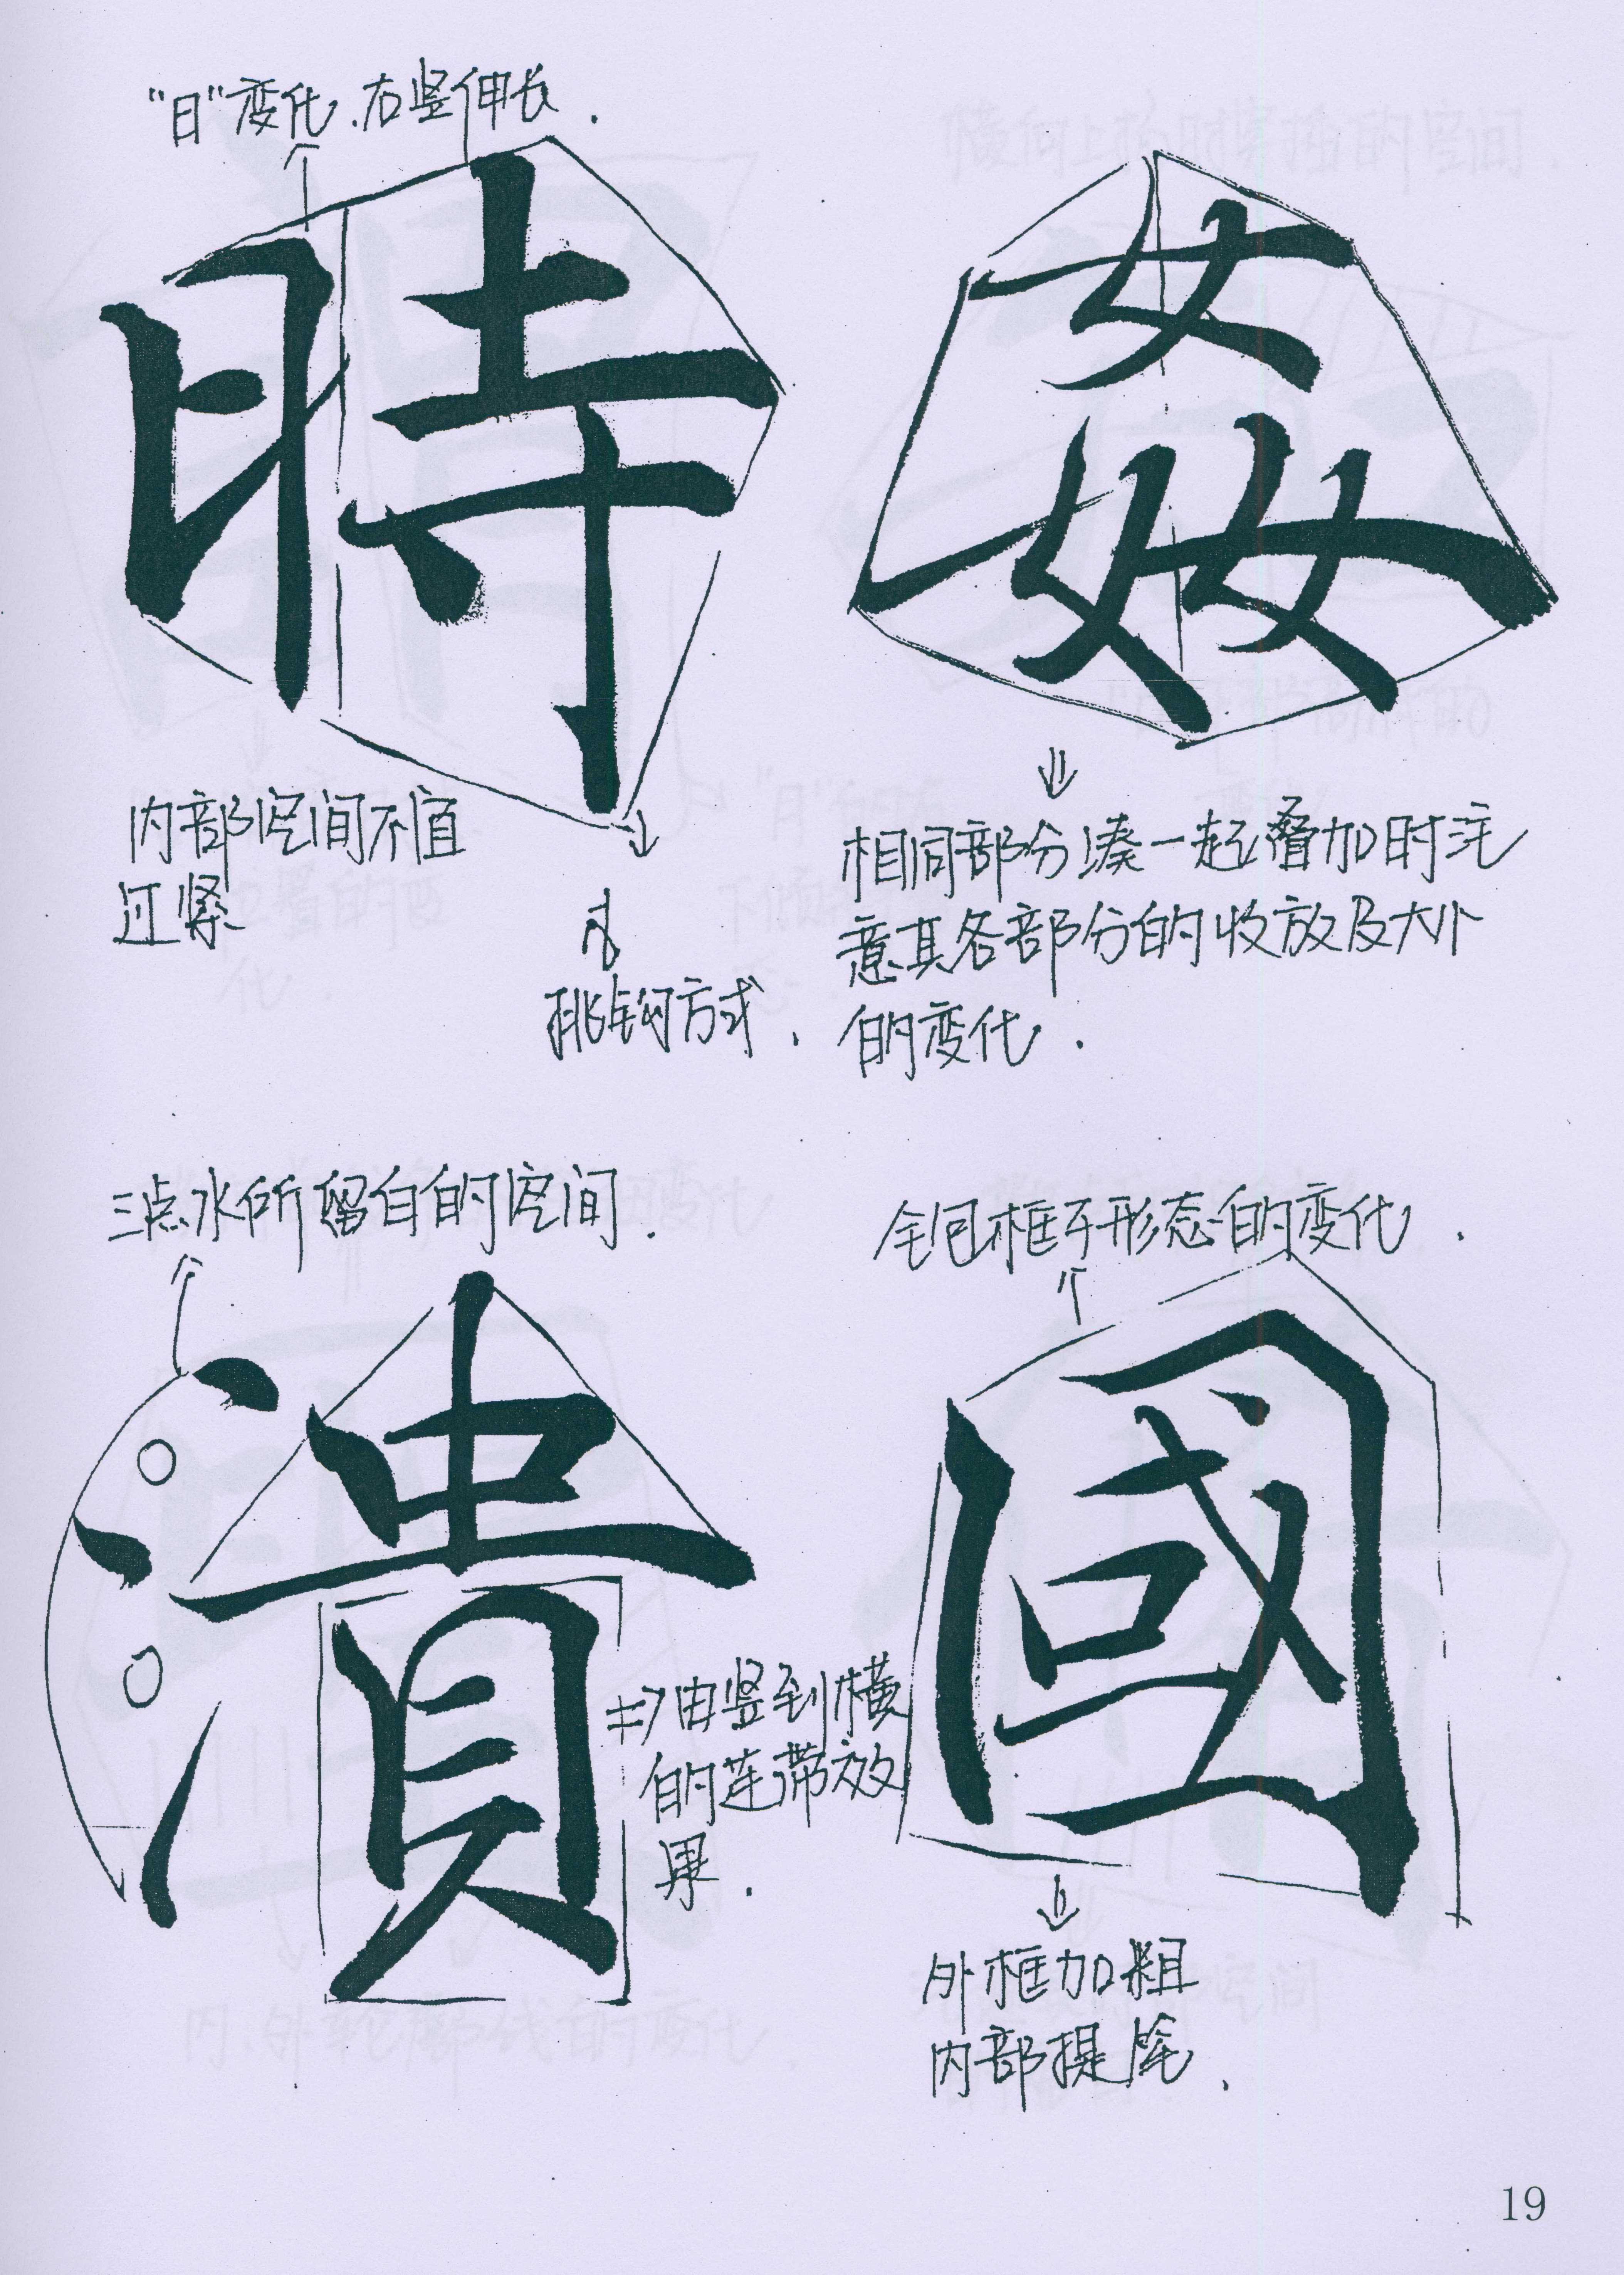 “日”变化.右竖伸长.
時
内部空间不宜
过紧
挑钩方式.
姦
相同部分凑一起叠加时注
意其各部分的收放及大小
的变化.
三点水所留白的空间.
潰
由竖到横
的连带效
果.
全包框子形态的变化.
國
外框加粗
内部提笔.
19